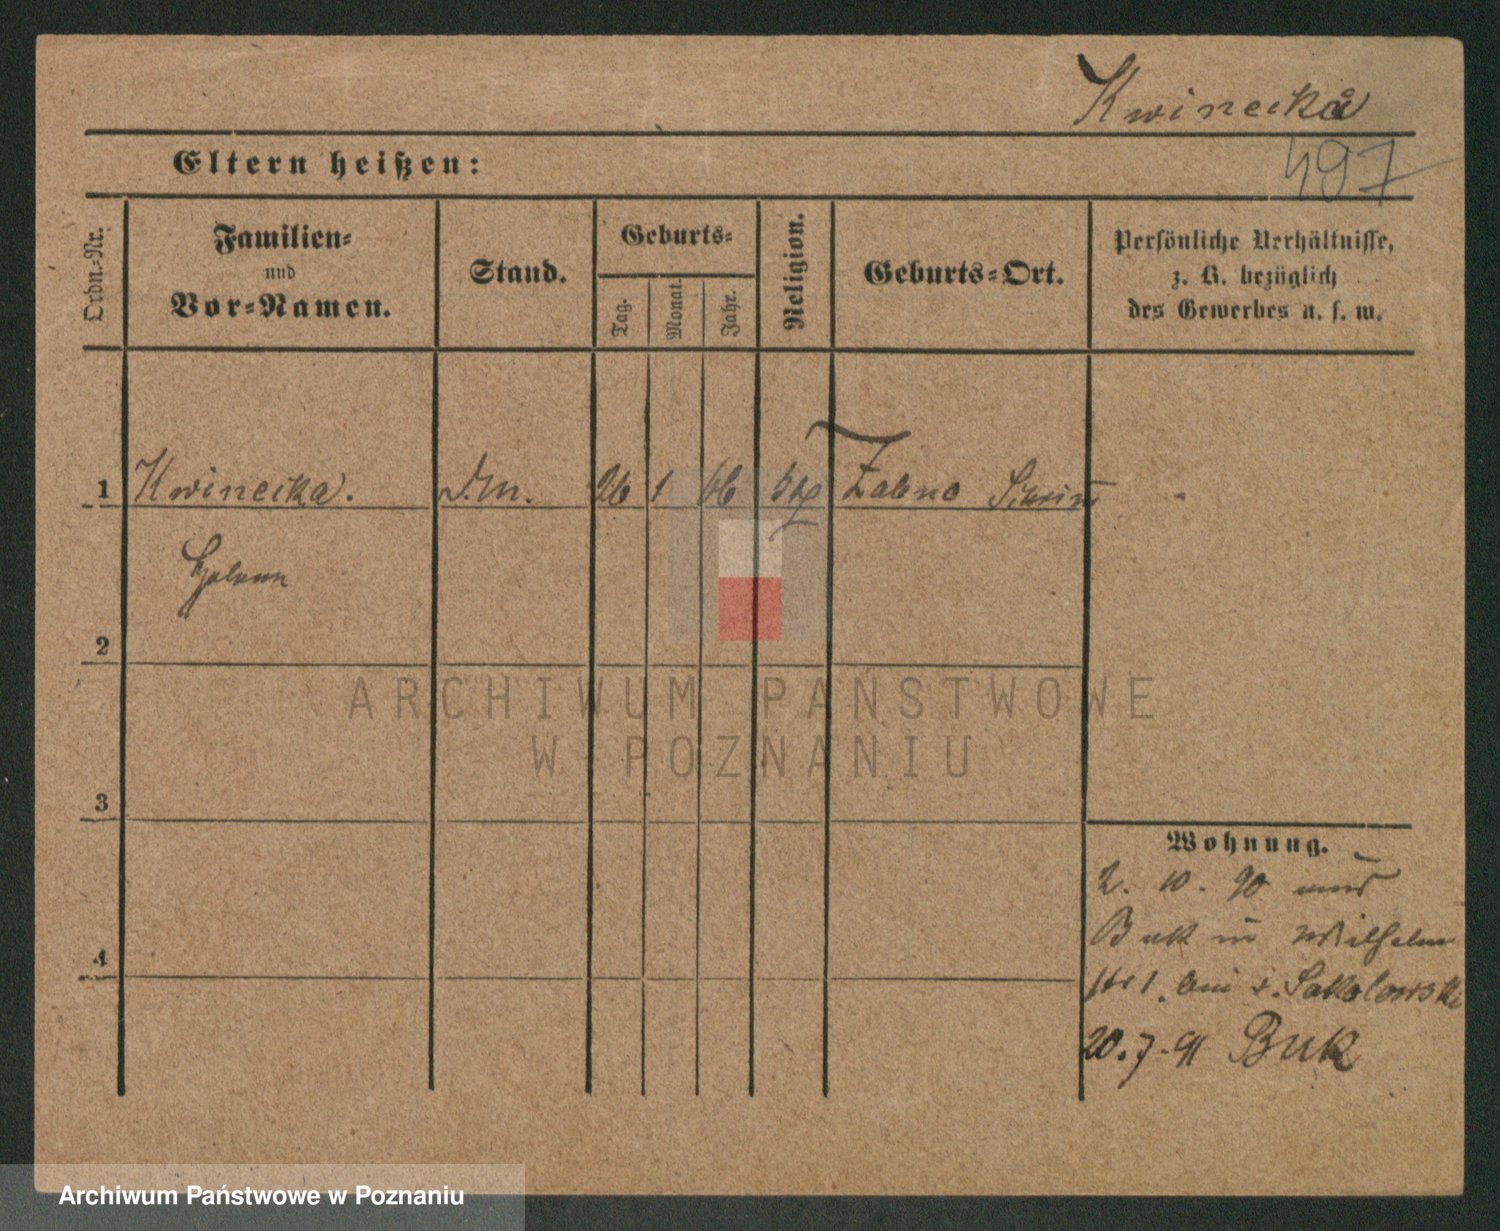 Kwinecka
497
Eltern heißen:
Ordn.-Nr.
Familien-
und
Vor-Namen.
Stand.
Geburts-
Tag.
Monat.
Jahr.
Religion.
Geburts-Ort.
Persönliche Verhältnisse,
z. B. bezüglich
des Gewerbes u. s. w.
1 Kwinecka. 26 1 66 Zabno
2
ARCHIWUM PAŃSTWOWE
W POZNANIU
3
Wohnung.
2. 10. 90 aus
Buk in Wilhelm
str 1. bei v. Sakolowski
4
20.7.91 Buk
Archiwum Państwowe w Poznaniu